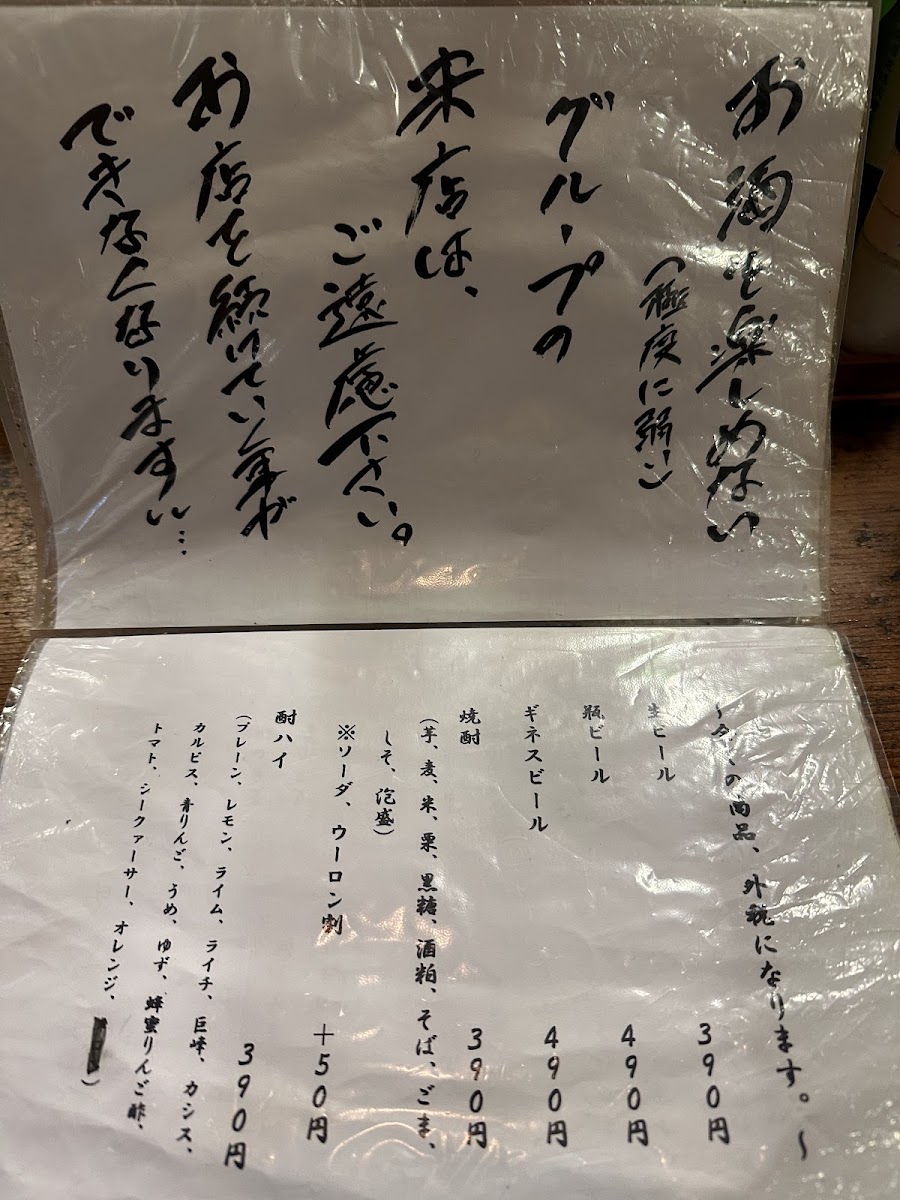 お酒も楽しめない
(極度に弱い)
グループの
来店は、
ご遠慮下さい。
お店を続けていく事が
できなくなります…
〜全ての商品、外税になります。〜
生ビール 390円
瓶ビール 490円
ギネスビール 490円
焼酎 390円
(芋、麦、米、栗、黒糖、酒粕、そば、ごま、
しそ、泡盛)
※ソーダ、ウーロン割 +50円
酎ハイ 390円
(プレーン、レモン、ライム、ライチ、巨峰、カシス、
カルピス、青りんご、うめ、ゆず、蜂蜜りんご酢、
トマト、シークァーサー、オレンジ、 )